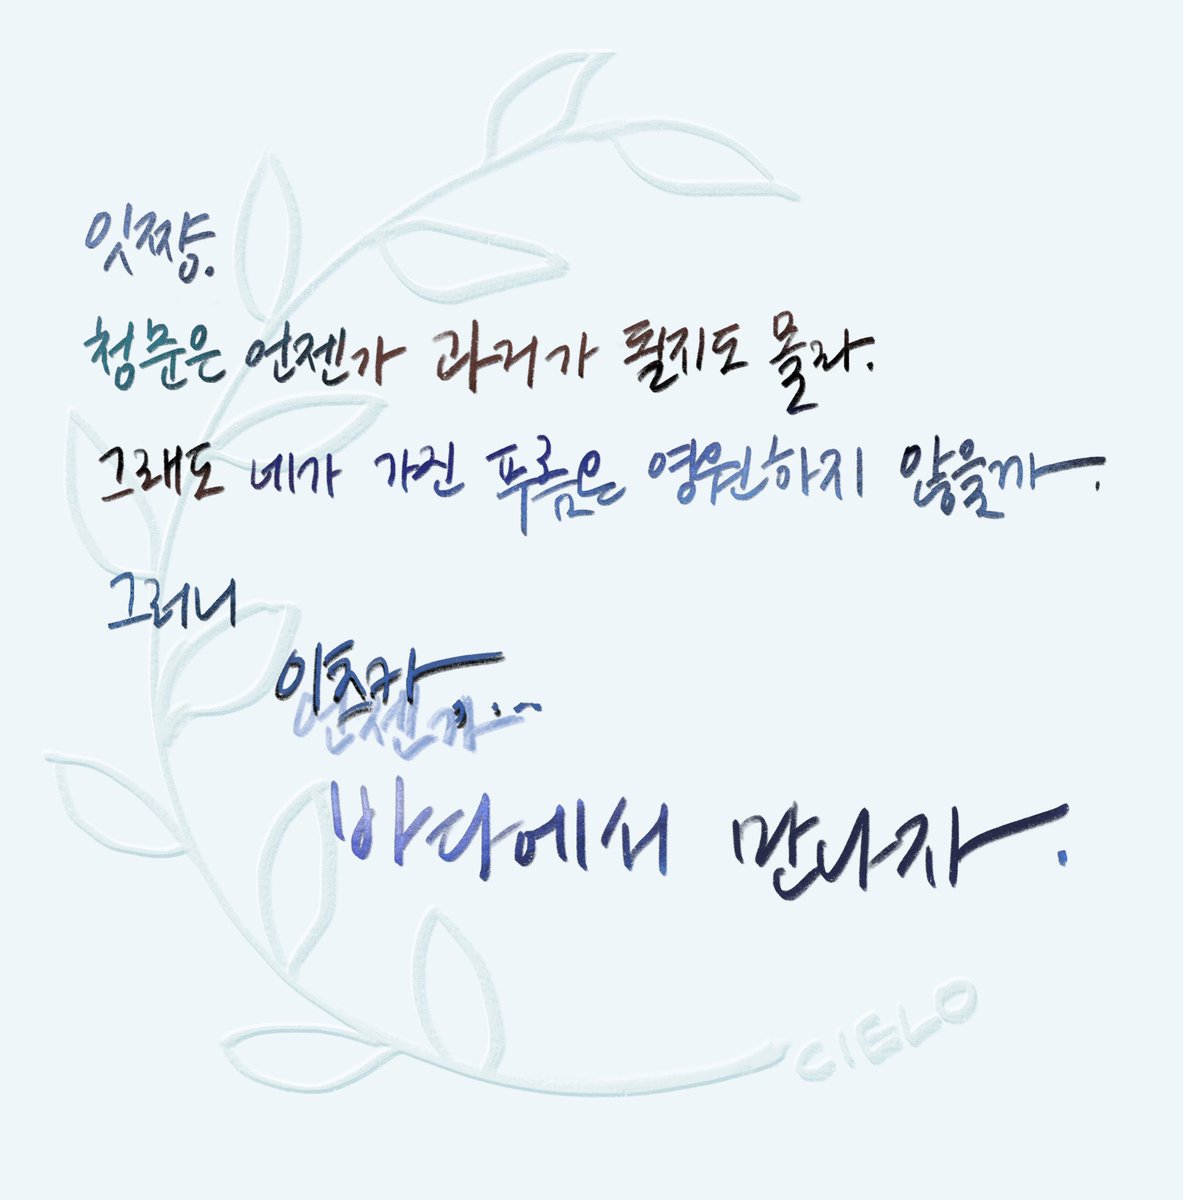 잇쨩.
청문은 언젠가 과거가 될지도 몰라.
그래도 네가 가진 푸름은 영원하지 않을까.
그러니
이츠카...
언젠가
바다에서 만나자.
CIELO